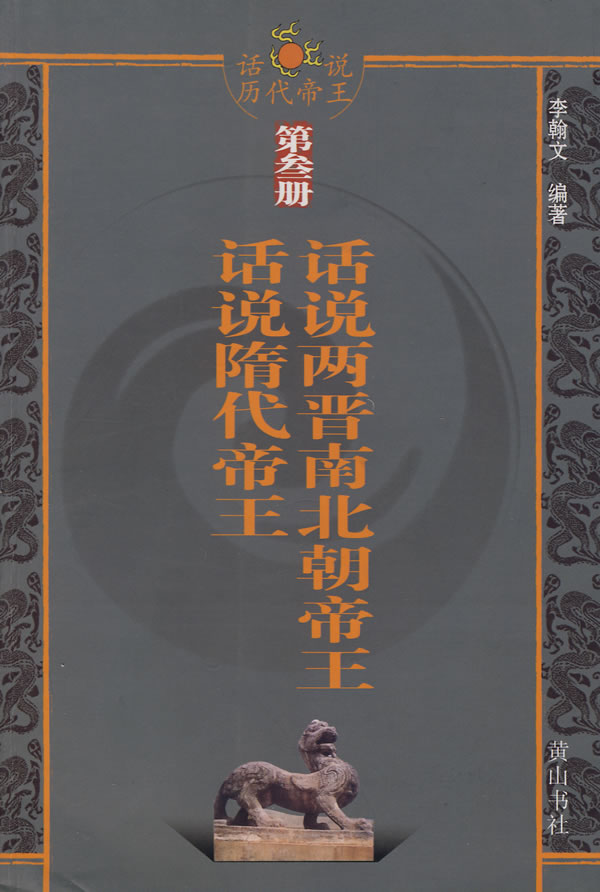 话说
历代帝王
第叁册
话说两晋南北朝帝王
话说隋代帝王
李翰文 编著
黄山书社